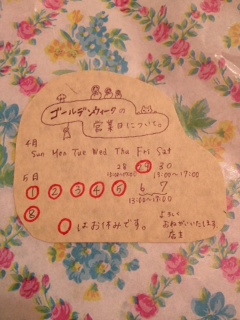 ゴールデンウィークの
営業日について。
4月
Sun Mon Tue Wed Thu Fri Sat
28 29 30
13:00〜17:00
5月
1 2 3 4 5 6 7
13:00〜17:00
8
○はお休みです。
よろしく
おねがいいたします
店主